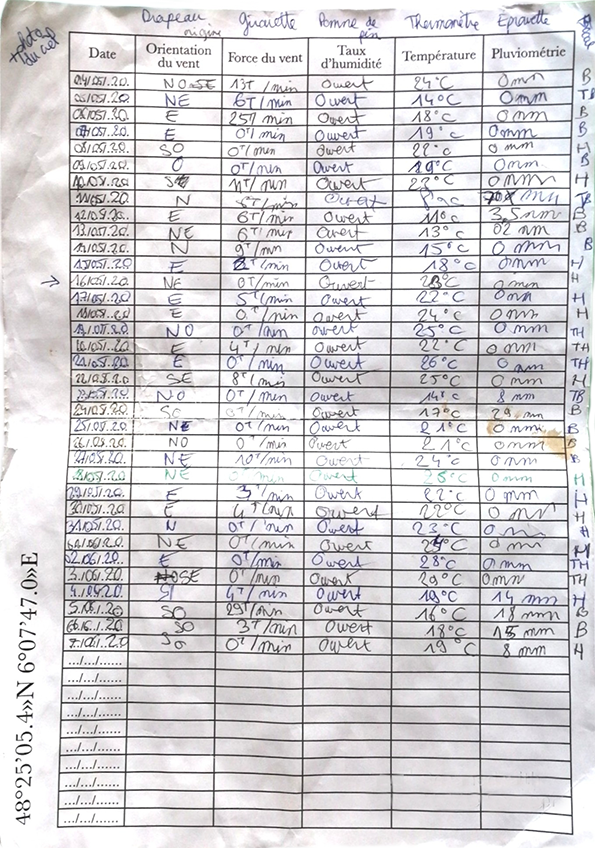 Drapeau Girouette Pomme de pin Thermomètre Eprouvette
origine
+photos du ciel
Date Orientation du vent Force du vent Taux d'humidité Température Pluviométrie
04/05/.20. NO-SE 13T/min Ouvert 24°C 0mm B
05/05/.20. NE 6T/min Ouvert 14°C 0mm TB
06/05/.20. E 25T/min Ouvert 18°C 0mm B
07/05/.20. E 0T/min Ouvert 19°C 0mm B
08/05/.20. SO 0T/min Ouvert 22°C 0mm H
09/05/.20. O 0T/min Ouvert 19°C 0mm B
10/05/.20. 1T/min Ouvert 23°C 0mm H
11/05/.20. N Ouvert TB
12/05/.20. E 6T/min Ouvert 11°C 3,5mm B
13/05/.20. NE 6T/min Ouvert 13°C 02mm B
14/05/.20. N 9T/min Ouvert 15°C 0mm B
15/05/.20. E 2T/min Ouvert 18°C 0mm H
16/05/.20. NE 0T/min Ouvert 0mm H
17/05/.20. E 5T/min Ouvert 22°C 0mm H
18/05/.20. E 0T/min Ouvert 24°C 0mm H
19/05/.20. NO 0T/min Ouvert 25°C 0mm TH
20/05/.20. E 4T/min Ouvert 22°C 0mm TH
21/05/.20. E 0T/min Ouvert 26°C 0mm TH
22/05/.20. SE 8T/min Ouvert 25°C 0mm H
23/05/.20. NO 0T/min Ouvert 14°C 8mm TB
24/05/.20. SO 0T/min Ouvert 17°C 29mm B
25/05/.20. NE 0T/min Ouvert 21°C 0mm B
26/05/.20. NO 0T/min Ouvert 21°C 0mm B
27/05/.20. NE 10T/min Ouvert 24°C 0mm B
28/05/.20. NE T/min Ouvert 0mm H
29/05/.20. E 3T/min Ouvert 22°C 0mm H
30/05/.20. E 4T/min Ouvert 22°C 0mm H
31/05/.20. N 0T/min Ouvert 23°C 0mm H
NE 0T/min Ouvert 0mm H
02/06/.20. E 0T/min Ouvert 28°C 0mm TH
3/06/.20. OSE 0T/min Ouvert 29°C 0mm TH
4T/min Ouvert 19°C 14mm H
5/06/.20. SO 29T/min Ouvert 16°C 18mm B
SO 3T/min Ouvert 18°C 15mm B
7/06/.20. SO 0T/min Ouvert 19°C 8mm H
.../.../......
.../.../......
.../.../......
.../.../......
.../.../......
.../.../......
.../.../......
.../.../......
.../.../......
.../.../......
48°25'05.4»N 6°07'47.0»E